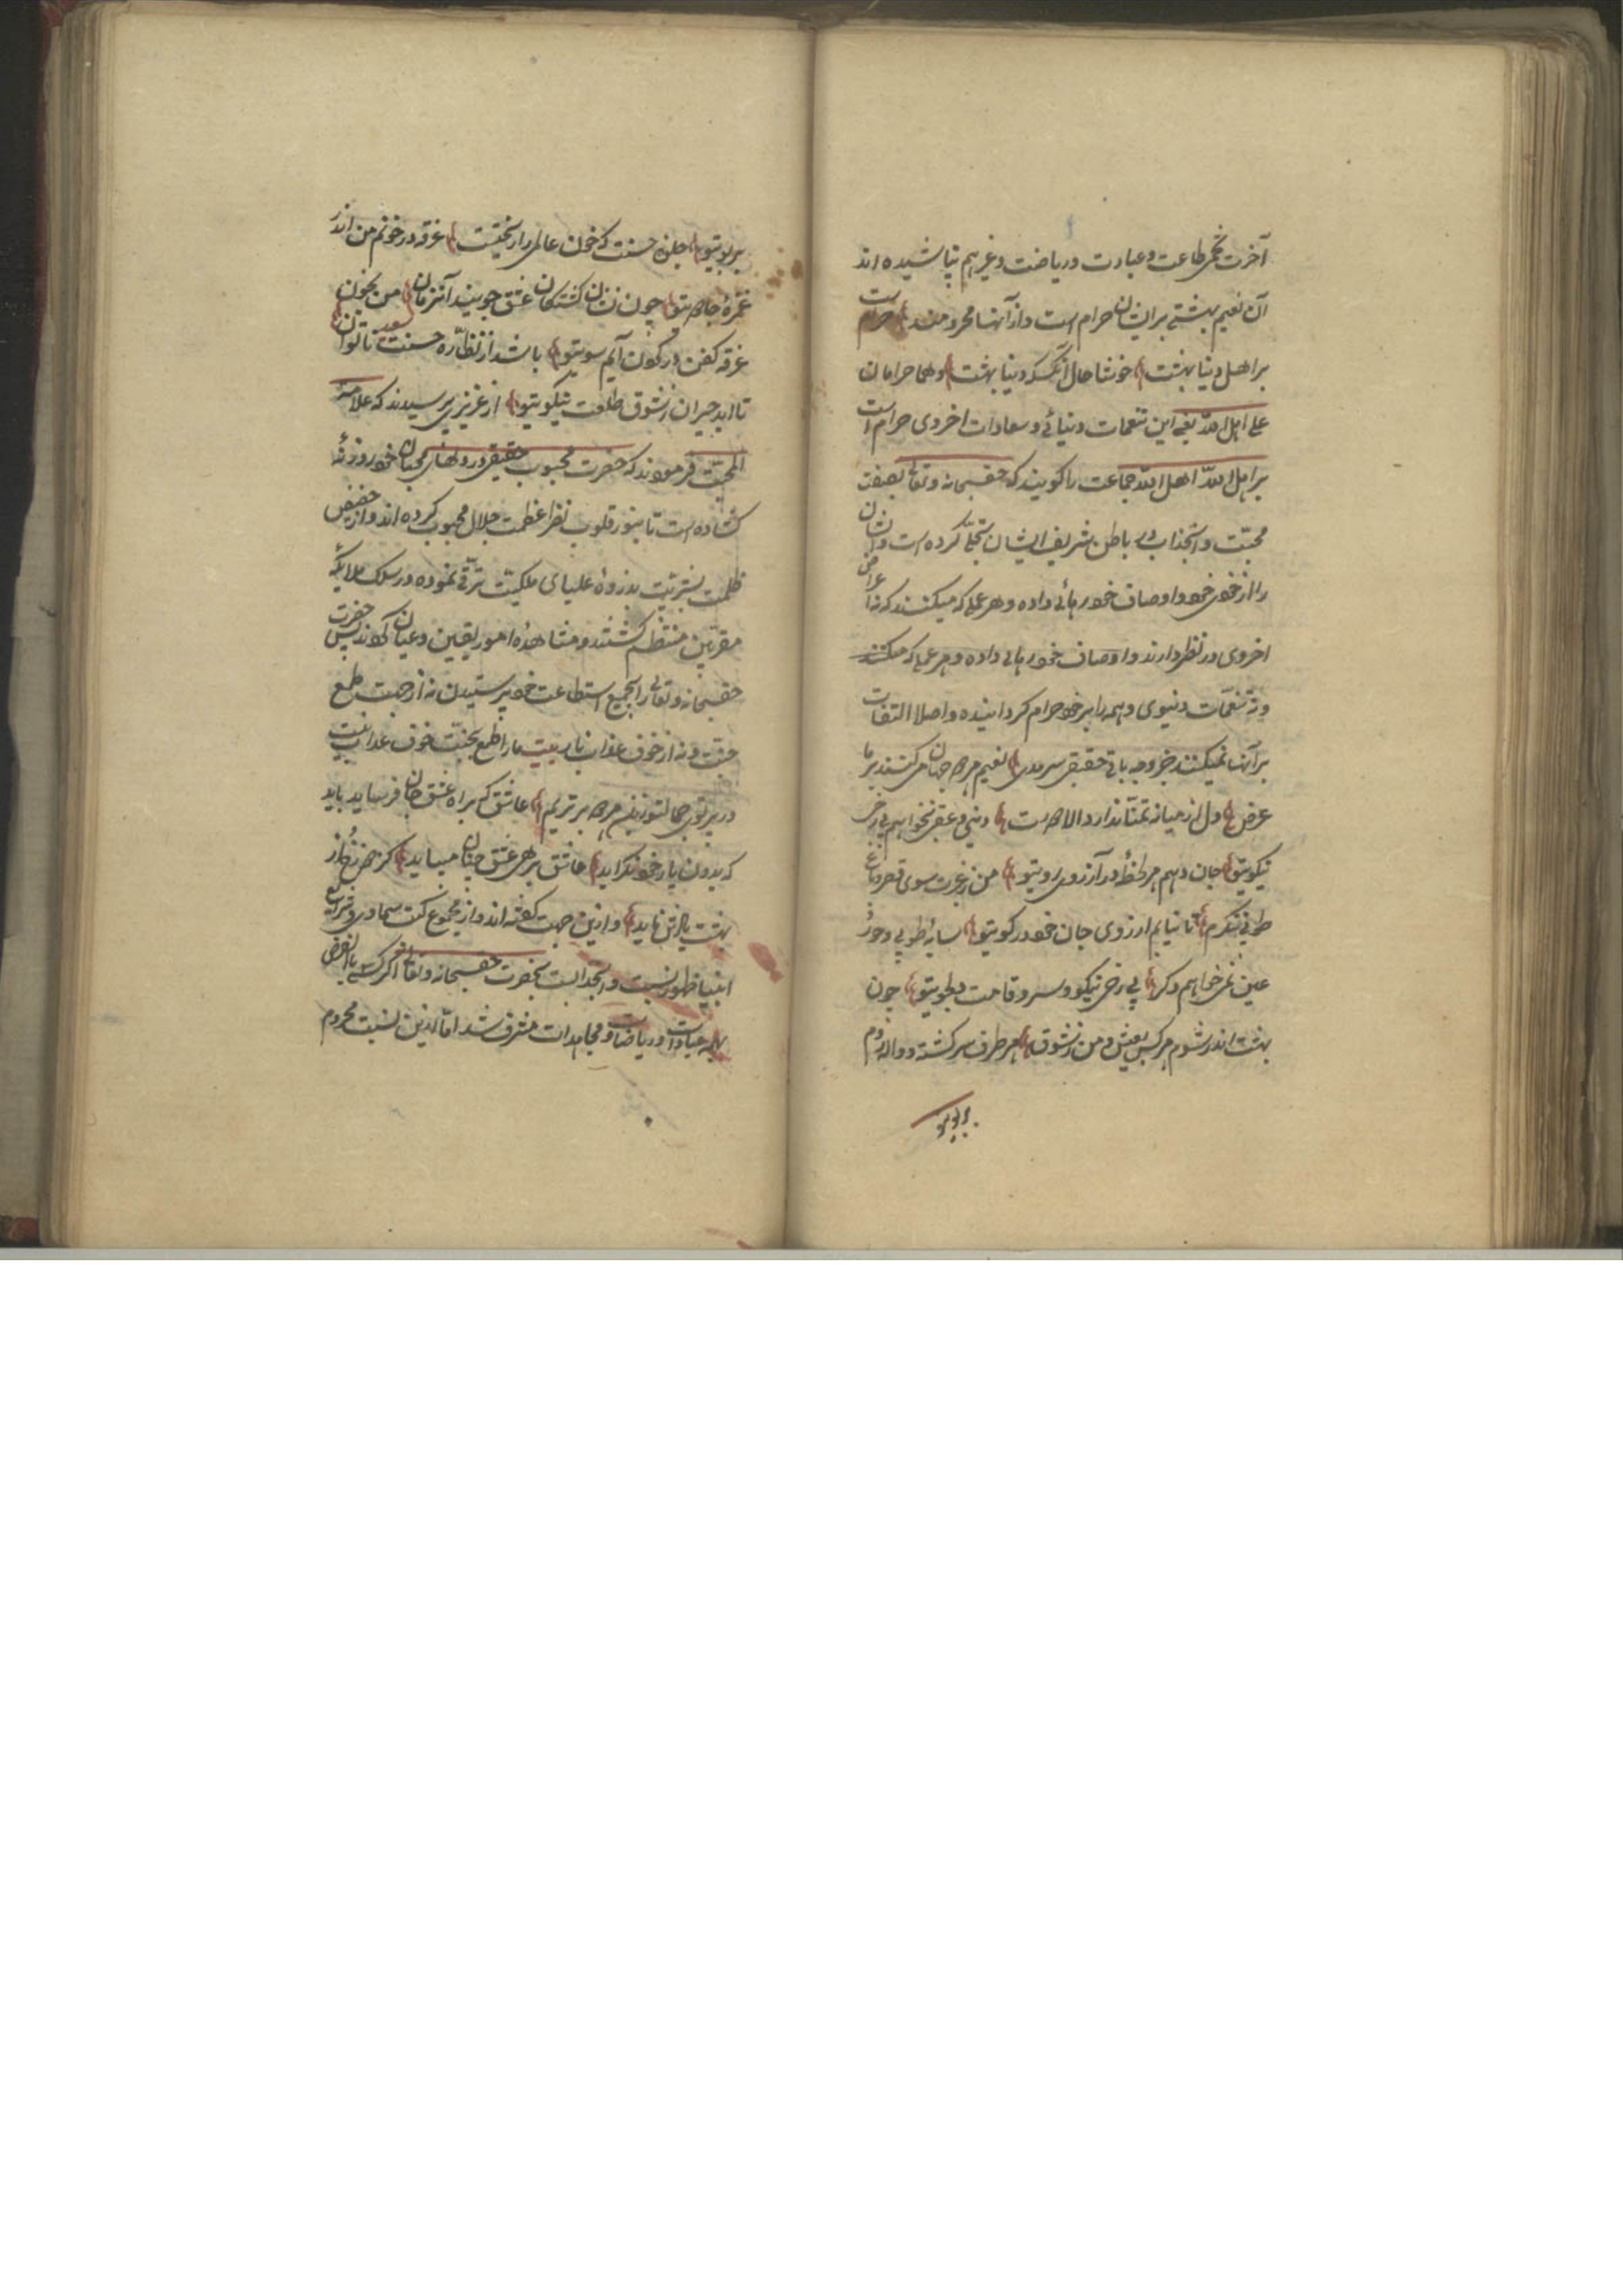 آخرت تخم طاعت و عبادت و ریاضت و غیرهم نپاشیده اند
آن نعیم بهشتی بر ایشان حرام است و از آنها محرومند حرام است
بر اهل دنیا بهشت خوشا حال آنکس که دنیا بهشت وهما حرامان
علی اهل الله یعنی این تنعمات دنیائی و سعادات اخروی حرام است
بر اهل الله اهل الله جماعت را گویند که حق سبحانه و تعالی بصفت
محبّت و انجذاب در باطن شریف ایشان تجلّی کرده است و ایشان
را از خودی خود و اوصاف خود رهائی داده و هر عملی که میکنند که نه اعراض
اخروی در نظر دارند و اوصاف خود رهائی داده و هر عملی که میکنند
و نه تنعّمات دنیوی و همه را بر خود حرام گردانیده و اصلا التفات
بر آنها نمیکنند جز وجه باقی حقیقی سرمدی نعیم هر دو جهان میکنند بر ما
عرض دل از میانه تمنّا ندارد الا دوست دنیی و عقبی نخواهم بی رخ
نیکویتو جان دهم هر لحظه در آرزوی رویتو من ز غیرت سوی قصر و باغ
طوبی ننگرم تا نیایم ارزوی جان خود در کویتو سایه طوبی و حور
عین نمی خواهم دگر بی رخ نیکو و سرو قامت دلجویتو چون
بهشت اندر شوم هر کس بعیش و من ز شوق هر طرف سرگشته و واله روم
بر بویتو
بر بویتو جلوه حسنت که خون عالمی را ریخت غرقه در خونم من اندر
غمزهٔ جادویتو چون نشان کشتگان عشق جویند آنزمان من بخون
غرقه کفن در گون آیم سویتو باشد از نظّاره حسنت سعد ناتوان
تا ابد حیران ز شوق طلعت نیکویتو از عزیزی پرسیدند که علامة
المحبّت فرمودند که حضرت محبوب حقیقی در دلهای محبان خود روزنه
گشاده است تا بنور قلوب نظر اعظمت جلال محبوب کرده اند و از حضیض
ظلمت بشریّت بذروهٔ علیای ملکیّت ترقّی نموده در سلک ملایکهٔ
مقرّبین منتظم گشتند و مشاهدهٔ امور یقین و عیان کردند پس حضرت
حق سبحانه و تعالی را بجمیع استطاعت خود پرستیدن نه از جهت طمع
جنّت و نه از خوف عذاب نار بیت ما را طمع بجنّت خوف عذاب نیست
در پرتوی جمالتو زین هر دو برتریم عاشق که براه عشق جان فرساید باید
که بدون یار خود نگراید عاشق بر هر عشق چنان میباید کز دوزخ و از
بهشت یادش ناید و ازین جهت گفته اند و از مجموع کتب سماوی و شرایع
انبیا ظهور نسبت و انجذابست بحضرت حق سبحانه و تعالی اگر کسی بالفرض
بهمه عبادات و ریاضات و مجاهدات مشرف شد امّا ازین نسبت محروم